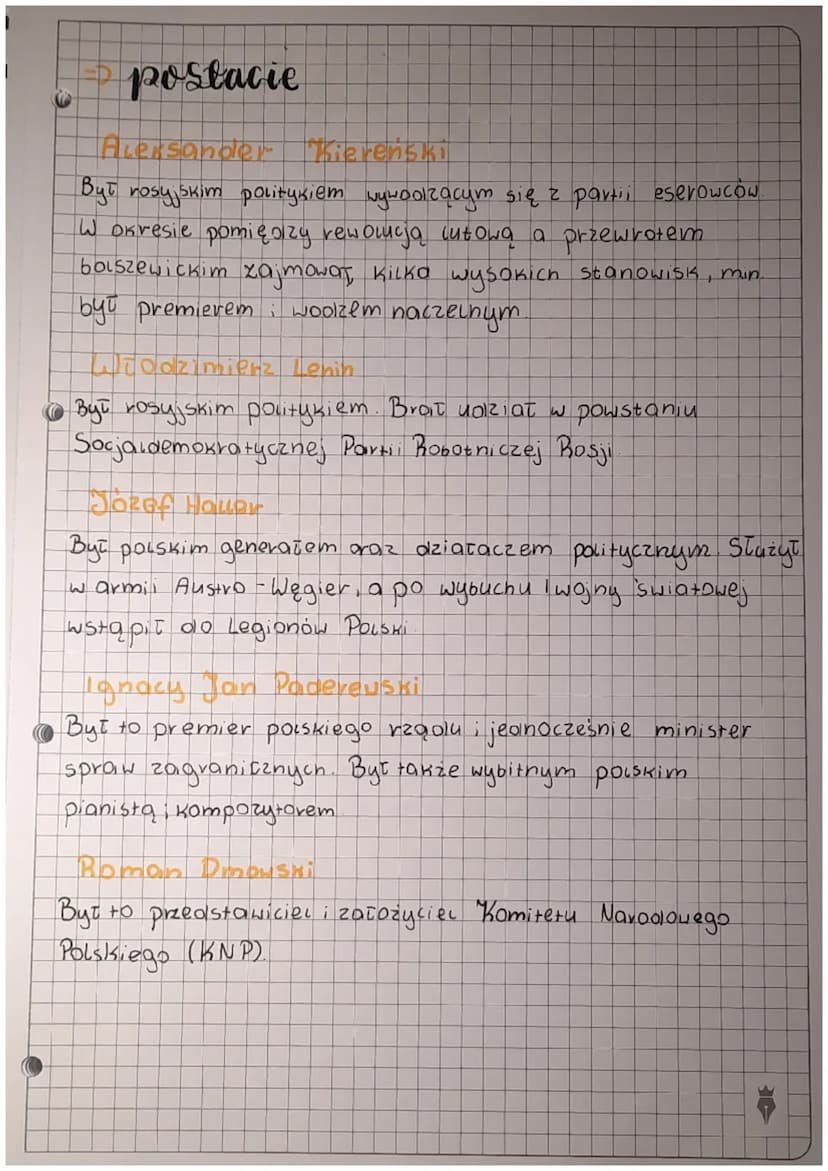 => postacie
Aleksander Kiereński
Był rosyjskim politykiem wywodzącym się z partii eserowców.
W okresie pomiędzy rewolucją lutową a przewrotem
bolszewickim zajmował kilka wysokich stanowisk, min.
był premierem i wodzem naczelnym.
Włodzimierz Lenin
Był rosyjskim politykiem. Brał udział w powstaniu
Socjaldemokratycznej Partii Robotniczej Rosji.
Józef Haller
Był polskim generałem oraz działaczem politycznym. Służył
w armii Austro-Węgier, a po wybuchu I wojny światowej
wstąpił do Legionów Polski.
Ignacy Jan Paderewski
Był to premier polskiego rządu i jednocześnie minister
spraw zagranicznych. Był także wybitnym polskim
pianistą i kompozytorem.
Roman Dmowski
Był to przedstawiciel i założyciel Komitetu Narodowego
Polskiego (KNP).